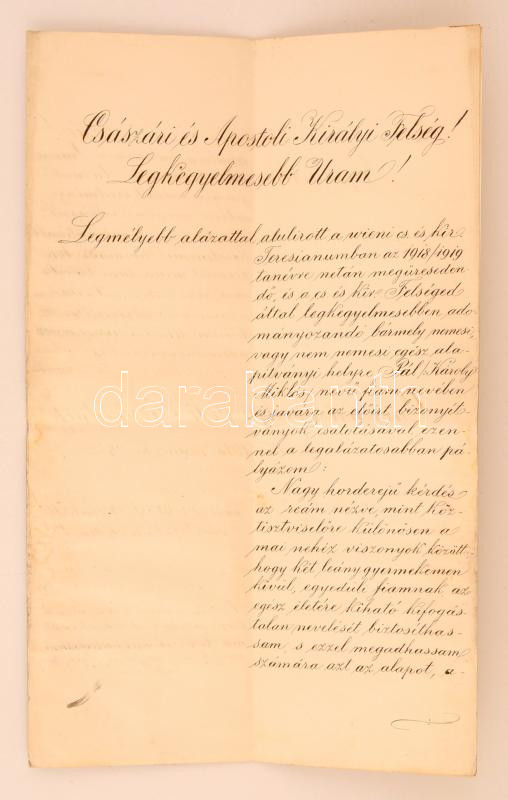 Császári és Apostoli Királyi Felség!
Legkegyelmesebb Uram!
Legmélyebb alázattal alulirott a wieni cs. és kir.
Teresianumban az 1918/1919
tanévre netán megüreseden-
dő, és a cs. és kir. Felséged
által legkegyelmesebben ado-
mányozandó bármely nemesi,
vagy nem nemesi egész ala-
pitványi helyre Pál /: Károly
Miklós :/ nevű fiam nevében
és javára az előirt bizonyit-
ványok csatolásával ezen-
nel a legalázatosabban pá-
lyázom:
Nagy horderejű kérdés
az reám nézve, mint köz-
tisztviselőre különösen a
mai nehéz viszonyok között,
hogy két leánygyermekemen
kivül, egyedüli fiamnak az
egész életére kiható kifogás-
talan nevelését biztosithas-
sam, s ezzel megadhassam
számára azt az alapot, a-
darabanth